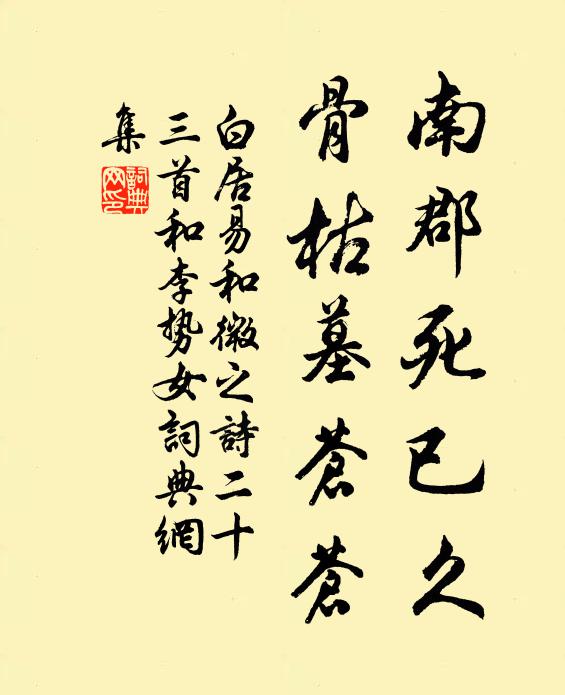 南郡死已久
骨枯墓蒼蒼
白居易和微之詩二十
三首和李势女詞典網
集
詞典
网印